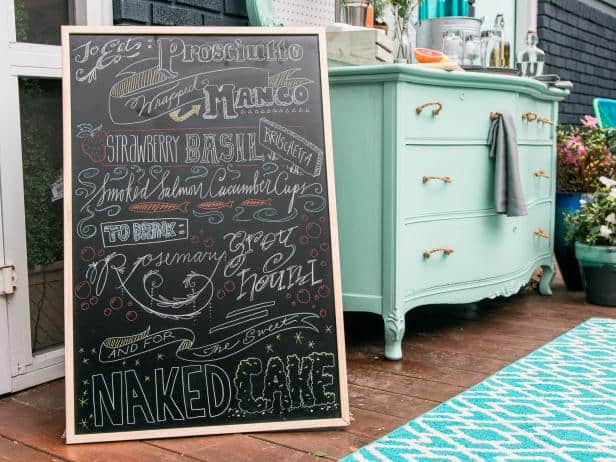 To Eats: Prosciutto
Wrapped MANGO
STRAWBERRY BASIL BRUSCHETTA
Smoked Salmon Cucumber Cups
TO DRINK:
Rosemary Grey
Hound
AND FOR The Sweet
NAKED CAKE